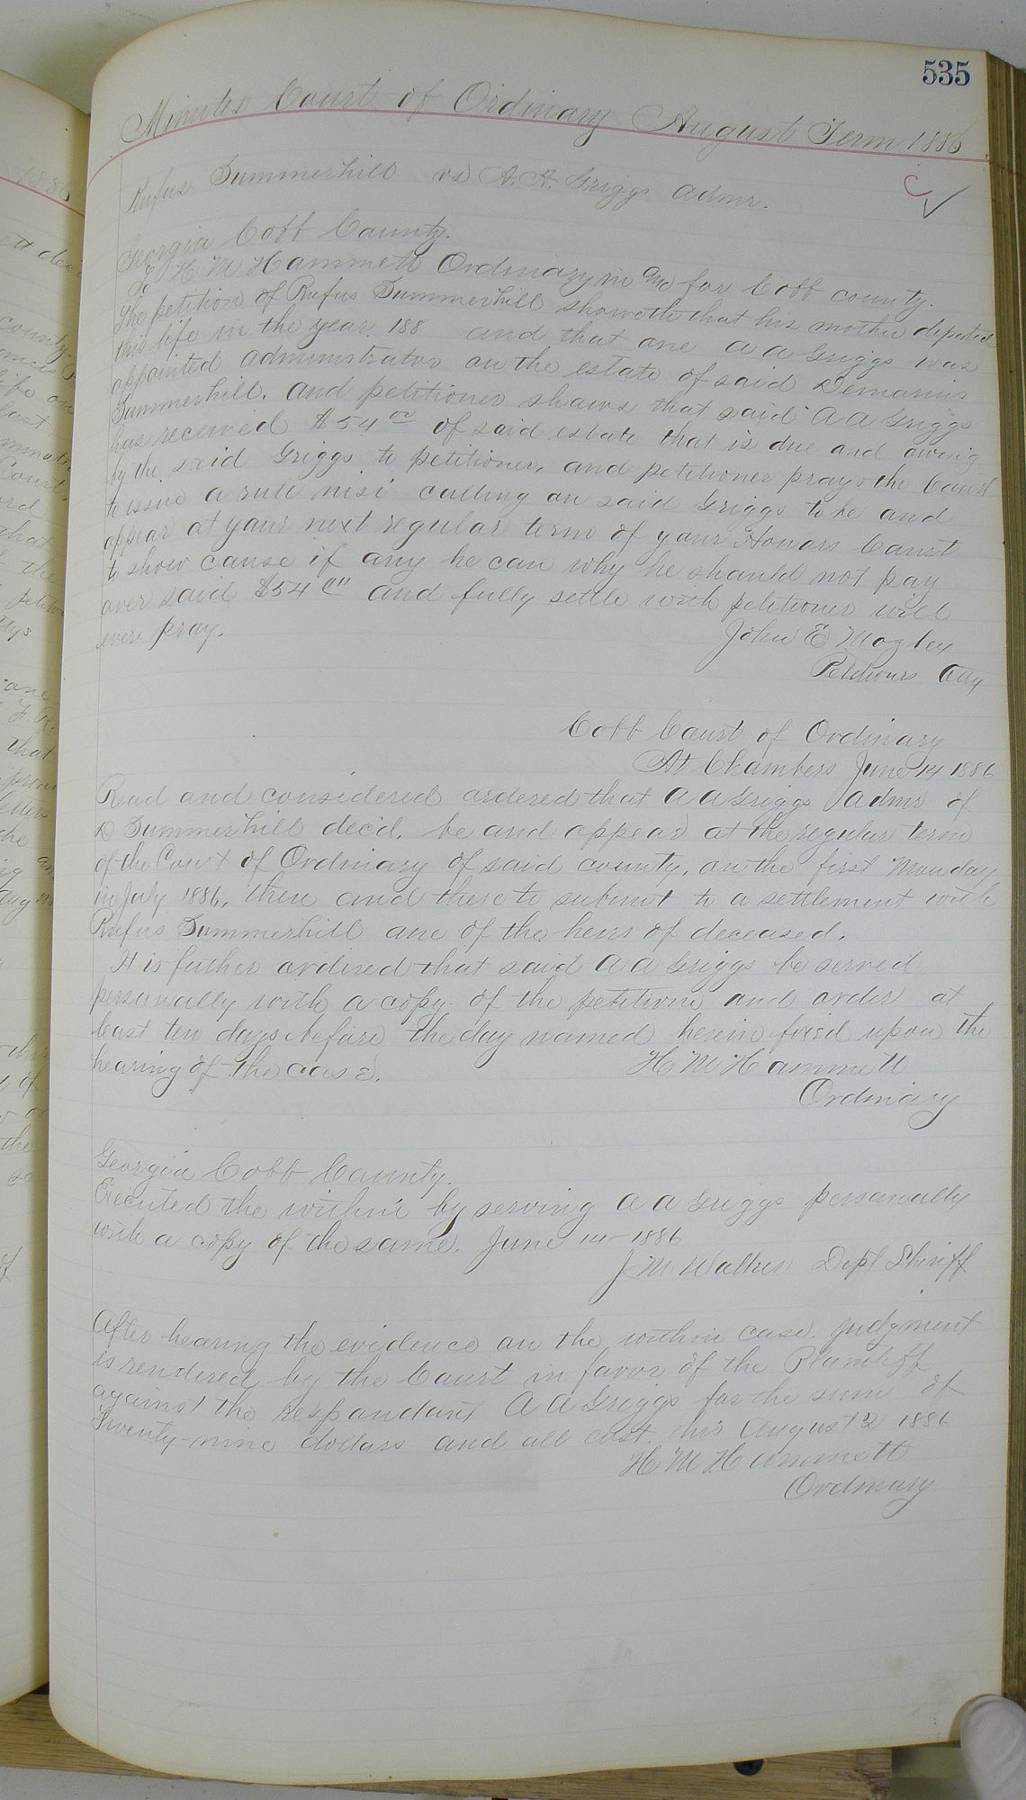 535
Minutes Court of Ordinary August Term 1886
Rufus Summerhill vs A. A. Griggs admr.
Georgia Cobb County.
To H M Hammett Ordinary in and for Cobb county.
The petition of Rufus Summerhill showeth that his mother departed
this life in the year 188 and that one A A Griggs was
appointed administrator on the estate of said
Summerhill. and petitioner shows that said A A Griggs
has received $54 of said estate that is due and owing
by the said Griggs to petitioner, and petitioner prays the Court
to issue a rule nisi calling on said Griggs to be and
appear at your next regular term of your Honors Court
to show cause if any he can why he should not pay
over said $54 and fully settle with petitioner will
ever pray.
John E Mozley
Petitioners Atty
Cobb Court of Ordinary
At Chambers June 14 1886
Read and considered ordered that A A Griggs admr of
D Summerhill dec'd. be and appear at the regular term
of the Court of Ordinary of said county, on the first Monday
in July 1886, then and there to submit to a settlement with
Rufus Summerhill one of the heirs of deceased.
It is futher ordered that said A A Griggs be served
personally with a copy of the petition and order at
least ten days before the day named herein fixed upon the
hearing of the case.
H M Hammett
Ordinary
Georgia Cobb County.
Executed the within by serving A A Griggs personally
with a copy of the same. June 14 1886
J M Walker Dept Shriff
After hearing the evidence on the within case judgment
is rendered by the Court in favor of the Plaintiff
against the Respondant A A Griggs for the sum of
Twenty-nine dollars and all cost. this August 2 1886
H M Hammett
Ordinary